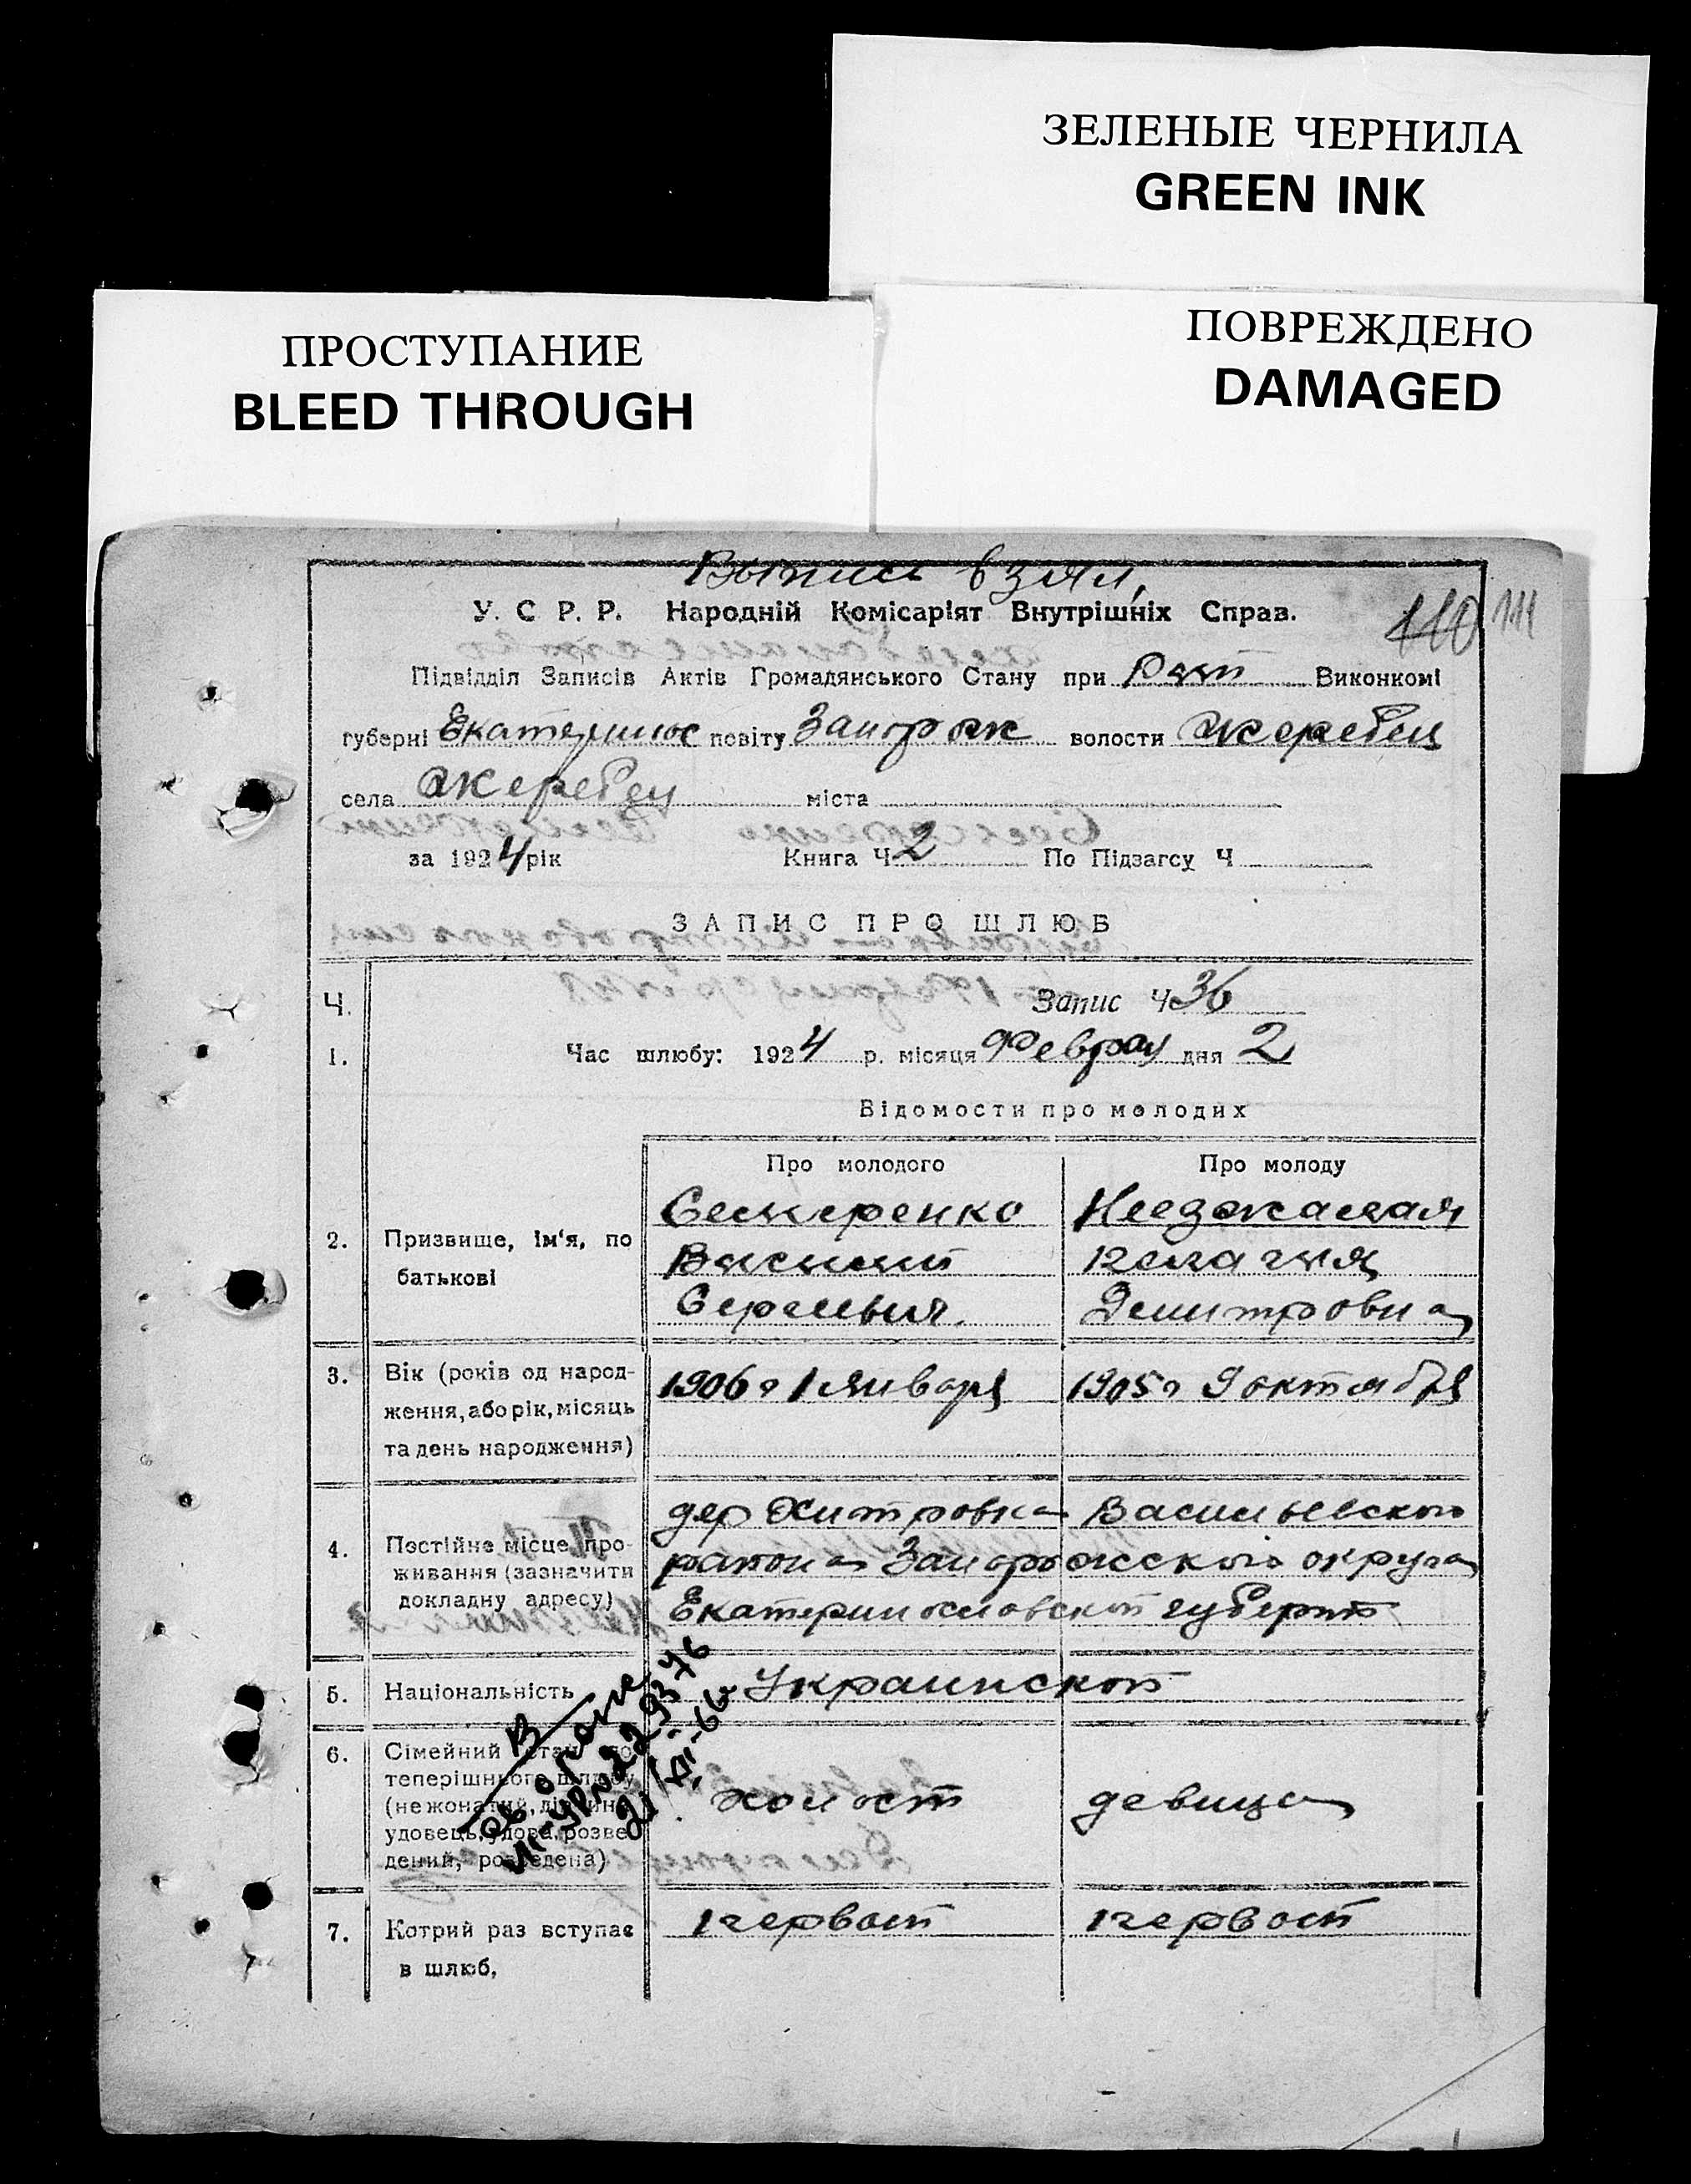 ЗЕЛЕНЫЕ ЧЕРНИЛА
GREEN INK
ПРОСТУПАНИЕ
BLEED THROUGH
ПОВРЕЖДЕНО
DAMAGED
Выпись взял,
У. С. Р. Р. Народній Комісаріят Внутрішніх Справ.
110 111
Підвідділ Записів Актів Громадянського Стану при Виконкомі
губерні Екатеринос повіту Запорож волости Жеребец
села Жеребец міста
за 1924 рік Книга Ч 2 По Підзагсу Ч
ЗАПИС ПРО ШЛЮБ
Ч. Запис Ч 36
1. Час шлюбу: 1924 р. місяця Феврал дня 2
Відомости про молодих
Про молодого Про молоду
2. Призвище, ім'я, по батькові
Василий
Сергеевич Дмитровна
3. Вік (років од народ-
ження, або рік, місяць
та день народження)
1906 г 1 января 1905 г 9 октября
4. Постійне місце про-
живання (зазначити
докладну адресу)
дер Хитровка Васильевского
района Запорожского округа
Екатеринославской губерни
5. Національність Украинской
6. Сімейний стан до
теперішнього шлюбу
(не жонатий, дівчина,
удовець, удова, розве-
дений, розведена)
холост девица
В
о браке
21/XI-66
7. Котрий раз вступає
в шлюб,
1 первой 1 первой